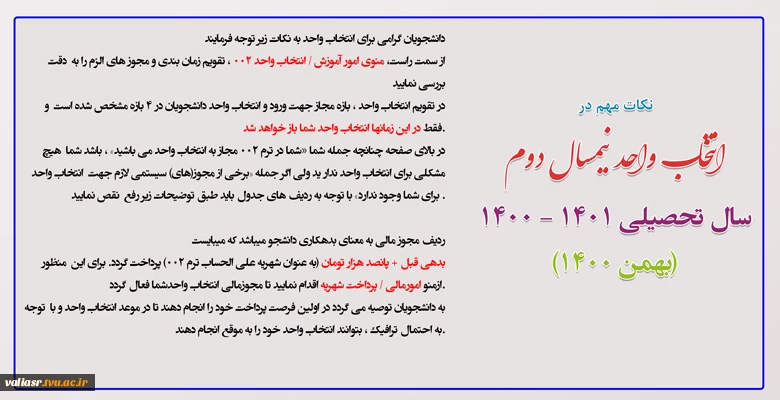 نکات مهم در
انتخاب واحد نیمسال دوم
سال تحصیلی ۱۴۰۱ - ۱۴۰۰
(بهمن ۱۴۰۰)
دانشجویان گرامی برای انتخاب واحد به نکات زیر توجه فرمایند
از سمت راست، منوی امور آموزش / انتخاب واحد ۰۰۲ ، تقویم زمان بندی و مجوز های الزم را به دقت
بررسی نمایید
در تقویم انتخاب واحد ، بازه مجاز جهت ورود و انتخاب واحد دانشجویان در ۴ بازه مشخص شده است و
.فقط در این زمانها انتخاب واحد شما باز خواهد شد
در بالای صفحه چنانچه جمله شما «شما در ترم ۰۰۲ مجاز به انتخاب واحد می باشید» ، باشد شما هیچ
مشکلی برای انتخاب واحد ندارید ولی اگر جمله «برخی از مجوز(های) سیستمی لازم جهت انتخاب واحد
. برای شما وجود ندارد» با توجه به ردیف های جدول باید طبق توضیحات زیر رفع نقص نمایید
ردیف مجوز مالی به معنای بدهکاری دانشجو میباشد که میبایست
بدهی قبل + پانصد هزار تومان (به عنوان شهریه علی الحساب ترم ۰۰۲) پرداخت گردد. برای این منظور
.ازمنو امورمالی / پرداخت شهریه اقدام نمایید تا مجوزمالی انتخاب واحدشما فعال گردد
به دانشجویان توصیه می گردد در اولین فرصت پرداخت خود را انجام دهند تا در موعد انتخاب واحد و با توجه
.به احتمال ترافیک ، بتوانند انتخاب واحد خود را به موقع انجام دهند
valiasr.tvu.ac.ir